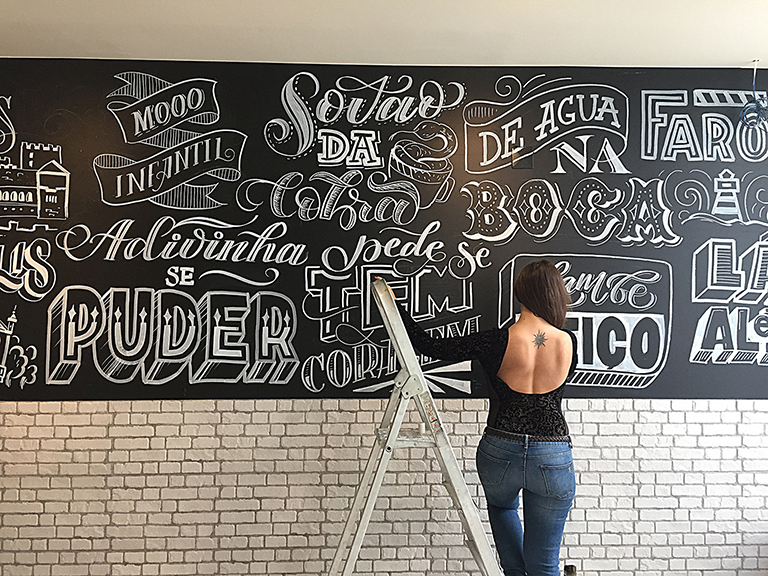 MOOO
INFANTIL
Sovaco
DA
Cobra
DE AGUA
NA
BOCA
FARO
Adivinha
SE
PUDER
pede se
TEM
Lambe